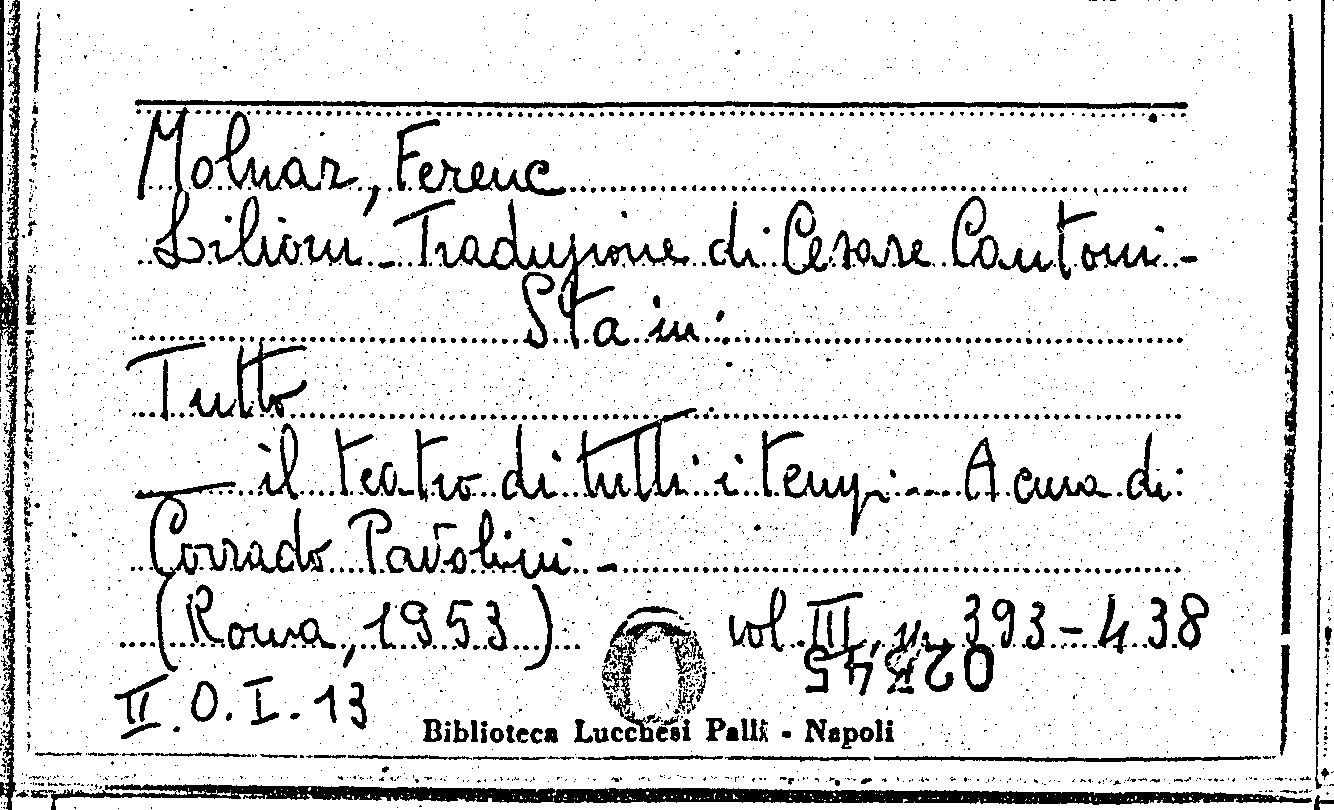 Molnar, Ferenc
Liliom - Traduzione di Cesare Cantoni -
Sta in:
Tutto
— il teatro di tutti i tempi - A cura di
Corrado Pavolini -
(Roma, 1953) vol III, pp. 393-438
II.O.I.13
Biblioteca Lucchesi Palli - Napoli